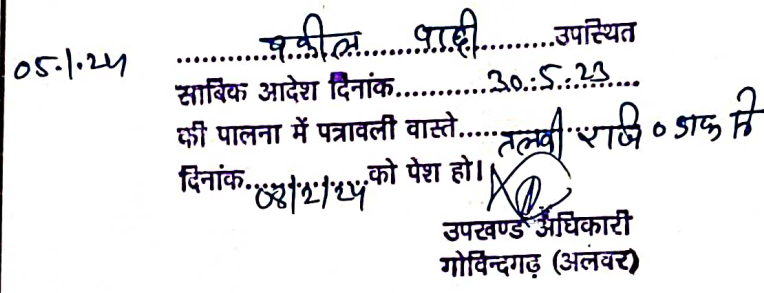 05.1.24
..............वकील....वादी..........उपस्थित
साबिक आदेश दिनांक............30.5.23......
की पालना में पत्रावली वास्ते......तलवी रजि० डाक से
दिनांक...08/2/24...को पेश हो।
उपखण्ड अधिकारी
गोविन्दगढ़ (अलवर)